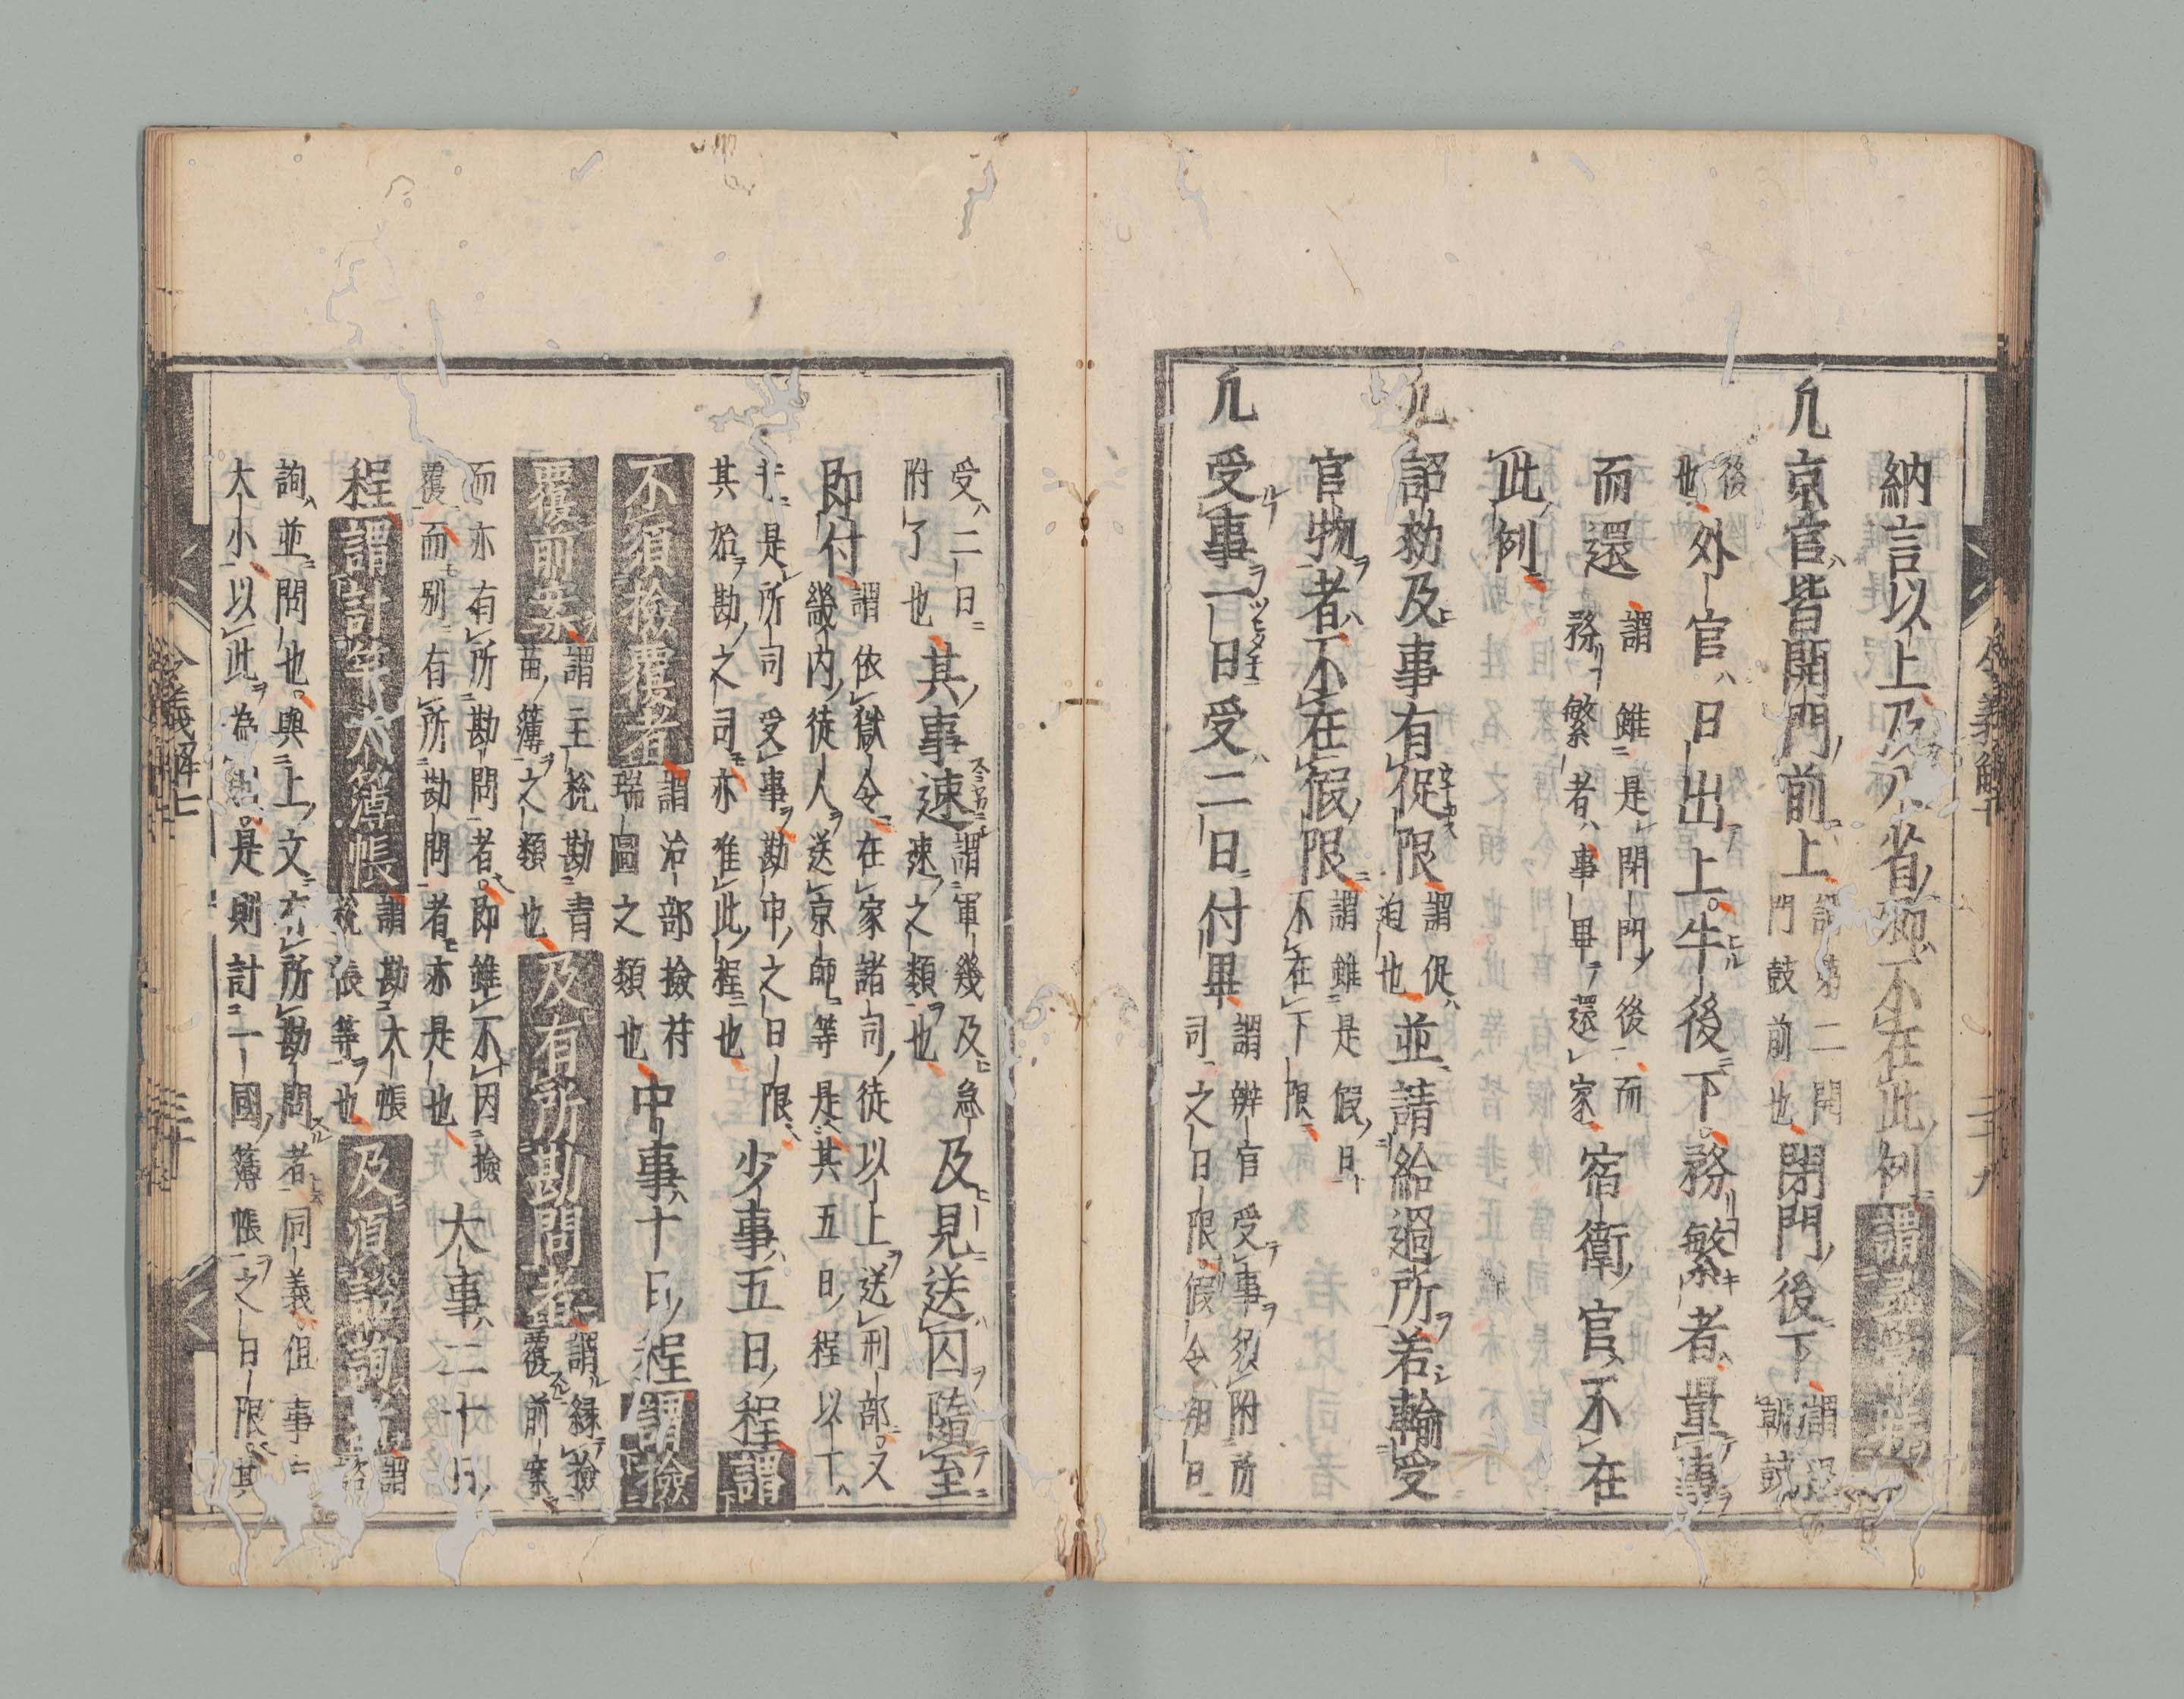 納言以上及八省卿不在此例謂
凡京官皆開門前上謂第二開門鼓前也閉門後下謂
後也外官日出上午後下務繁者量事
而還謂雖是閉門後而務繁者事畢還家宿衛官不在
此例
凡詔勅及事有促限謂促迫也並請給過所若輸受
官物者不在假限謂雖是假日不在下限
凡受事一日受二日付畢謂辨官受事須附所司之日限假令朔日
受二日附了也其事速謂軍機及急速之類也及見送囚隨至
即付謂依獄令在家諸司徒以上送刑部又畿内徒人送京師等是其五日程以下
者是所司受事勘申之日限其始勘之司亦准此程也少事五日程謂
不須撿覆者謂治部撿符瑞圖之類也中事十日程謂撿
覆前案謂主税勘青苗簿之類也及有所勘問者謂縁撿覆前案
而亦有所勘問者即雖不因撿覆而別有所勘問者亦是也大事二十日
程謂計筭大簿帳謂勘大帳税帳等也及須諮詢者謂諮
詢並問也與上文有所勘問者同義但事有
大小以此為別是則計一國簿帳之日限其
令義解七
二十九
令義解七
三十